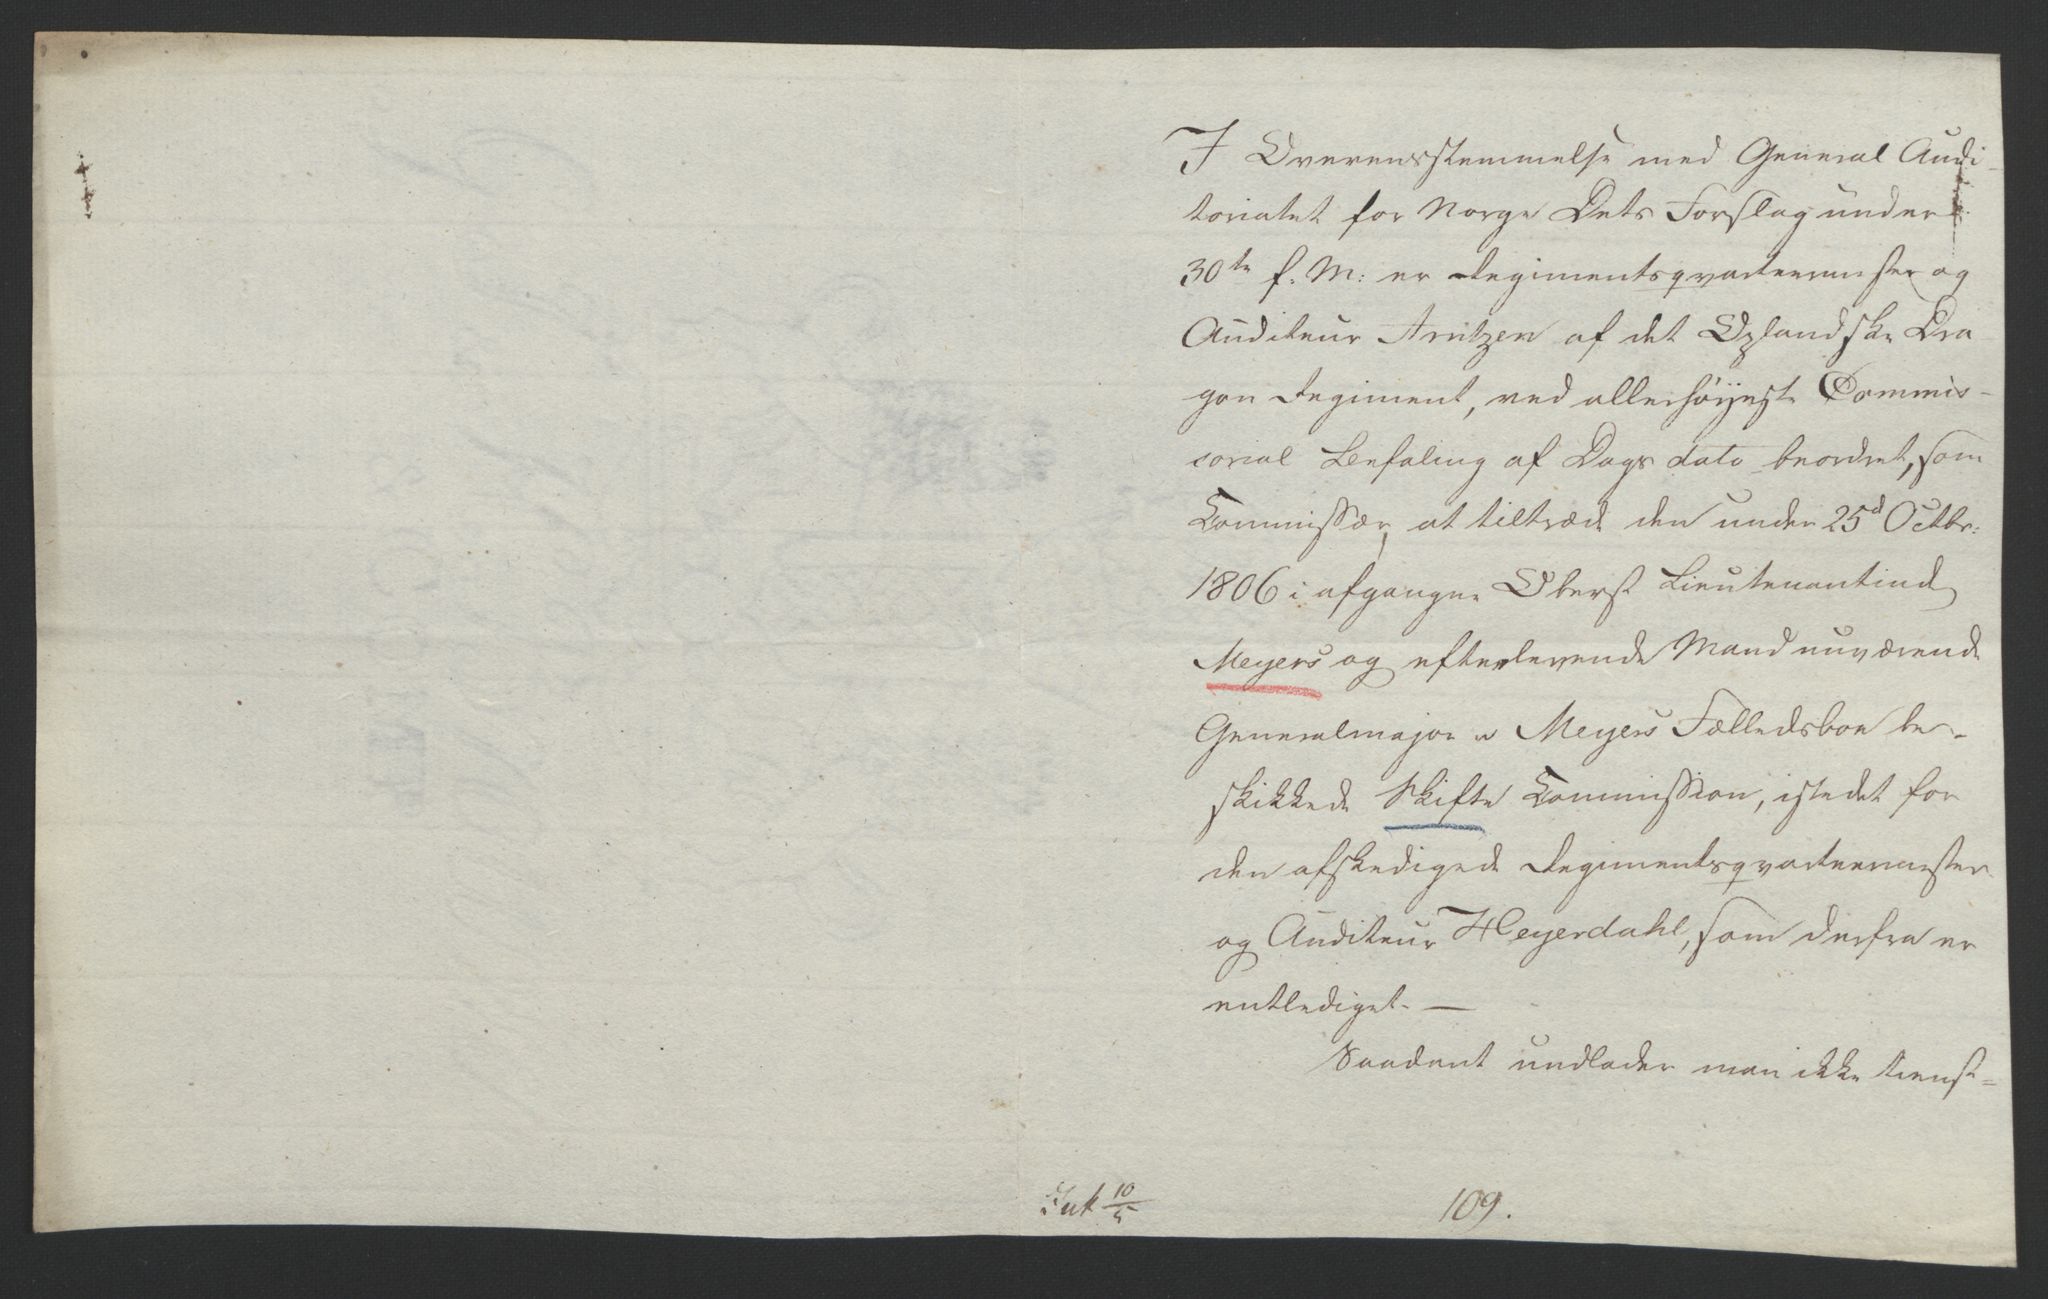 I Overensstemmelse med General Audi-
toriatet for Norge Dets Forslag under
30te f. M: er Regimentsqvarteermester og
Auditeur Arntzen af det Oplandske Dra
gon Regiment, ved allerhøyeste Commis-
sorial Befaling af Dags dato beordret, som
Commissær, at tiltræde den under 25d Octbr:
1806 i afgangne Oberst Lieutenantinde
Meyers og efterlevende Mand nuværende
Generalmajor v Meyers Fælledsboe be-
skikkede Skifte Commission, istedet for
den afskedigede Regimentsqvarteermester
og Auditeur Heyerdahl, som derfra er
entlediget. —
Saadant undlader man ikke tienst=
Ink 10/5
109.